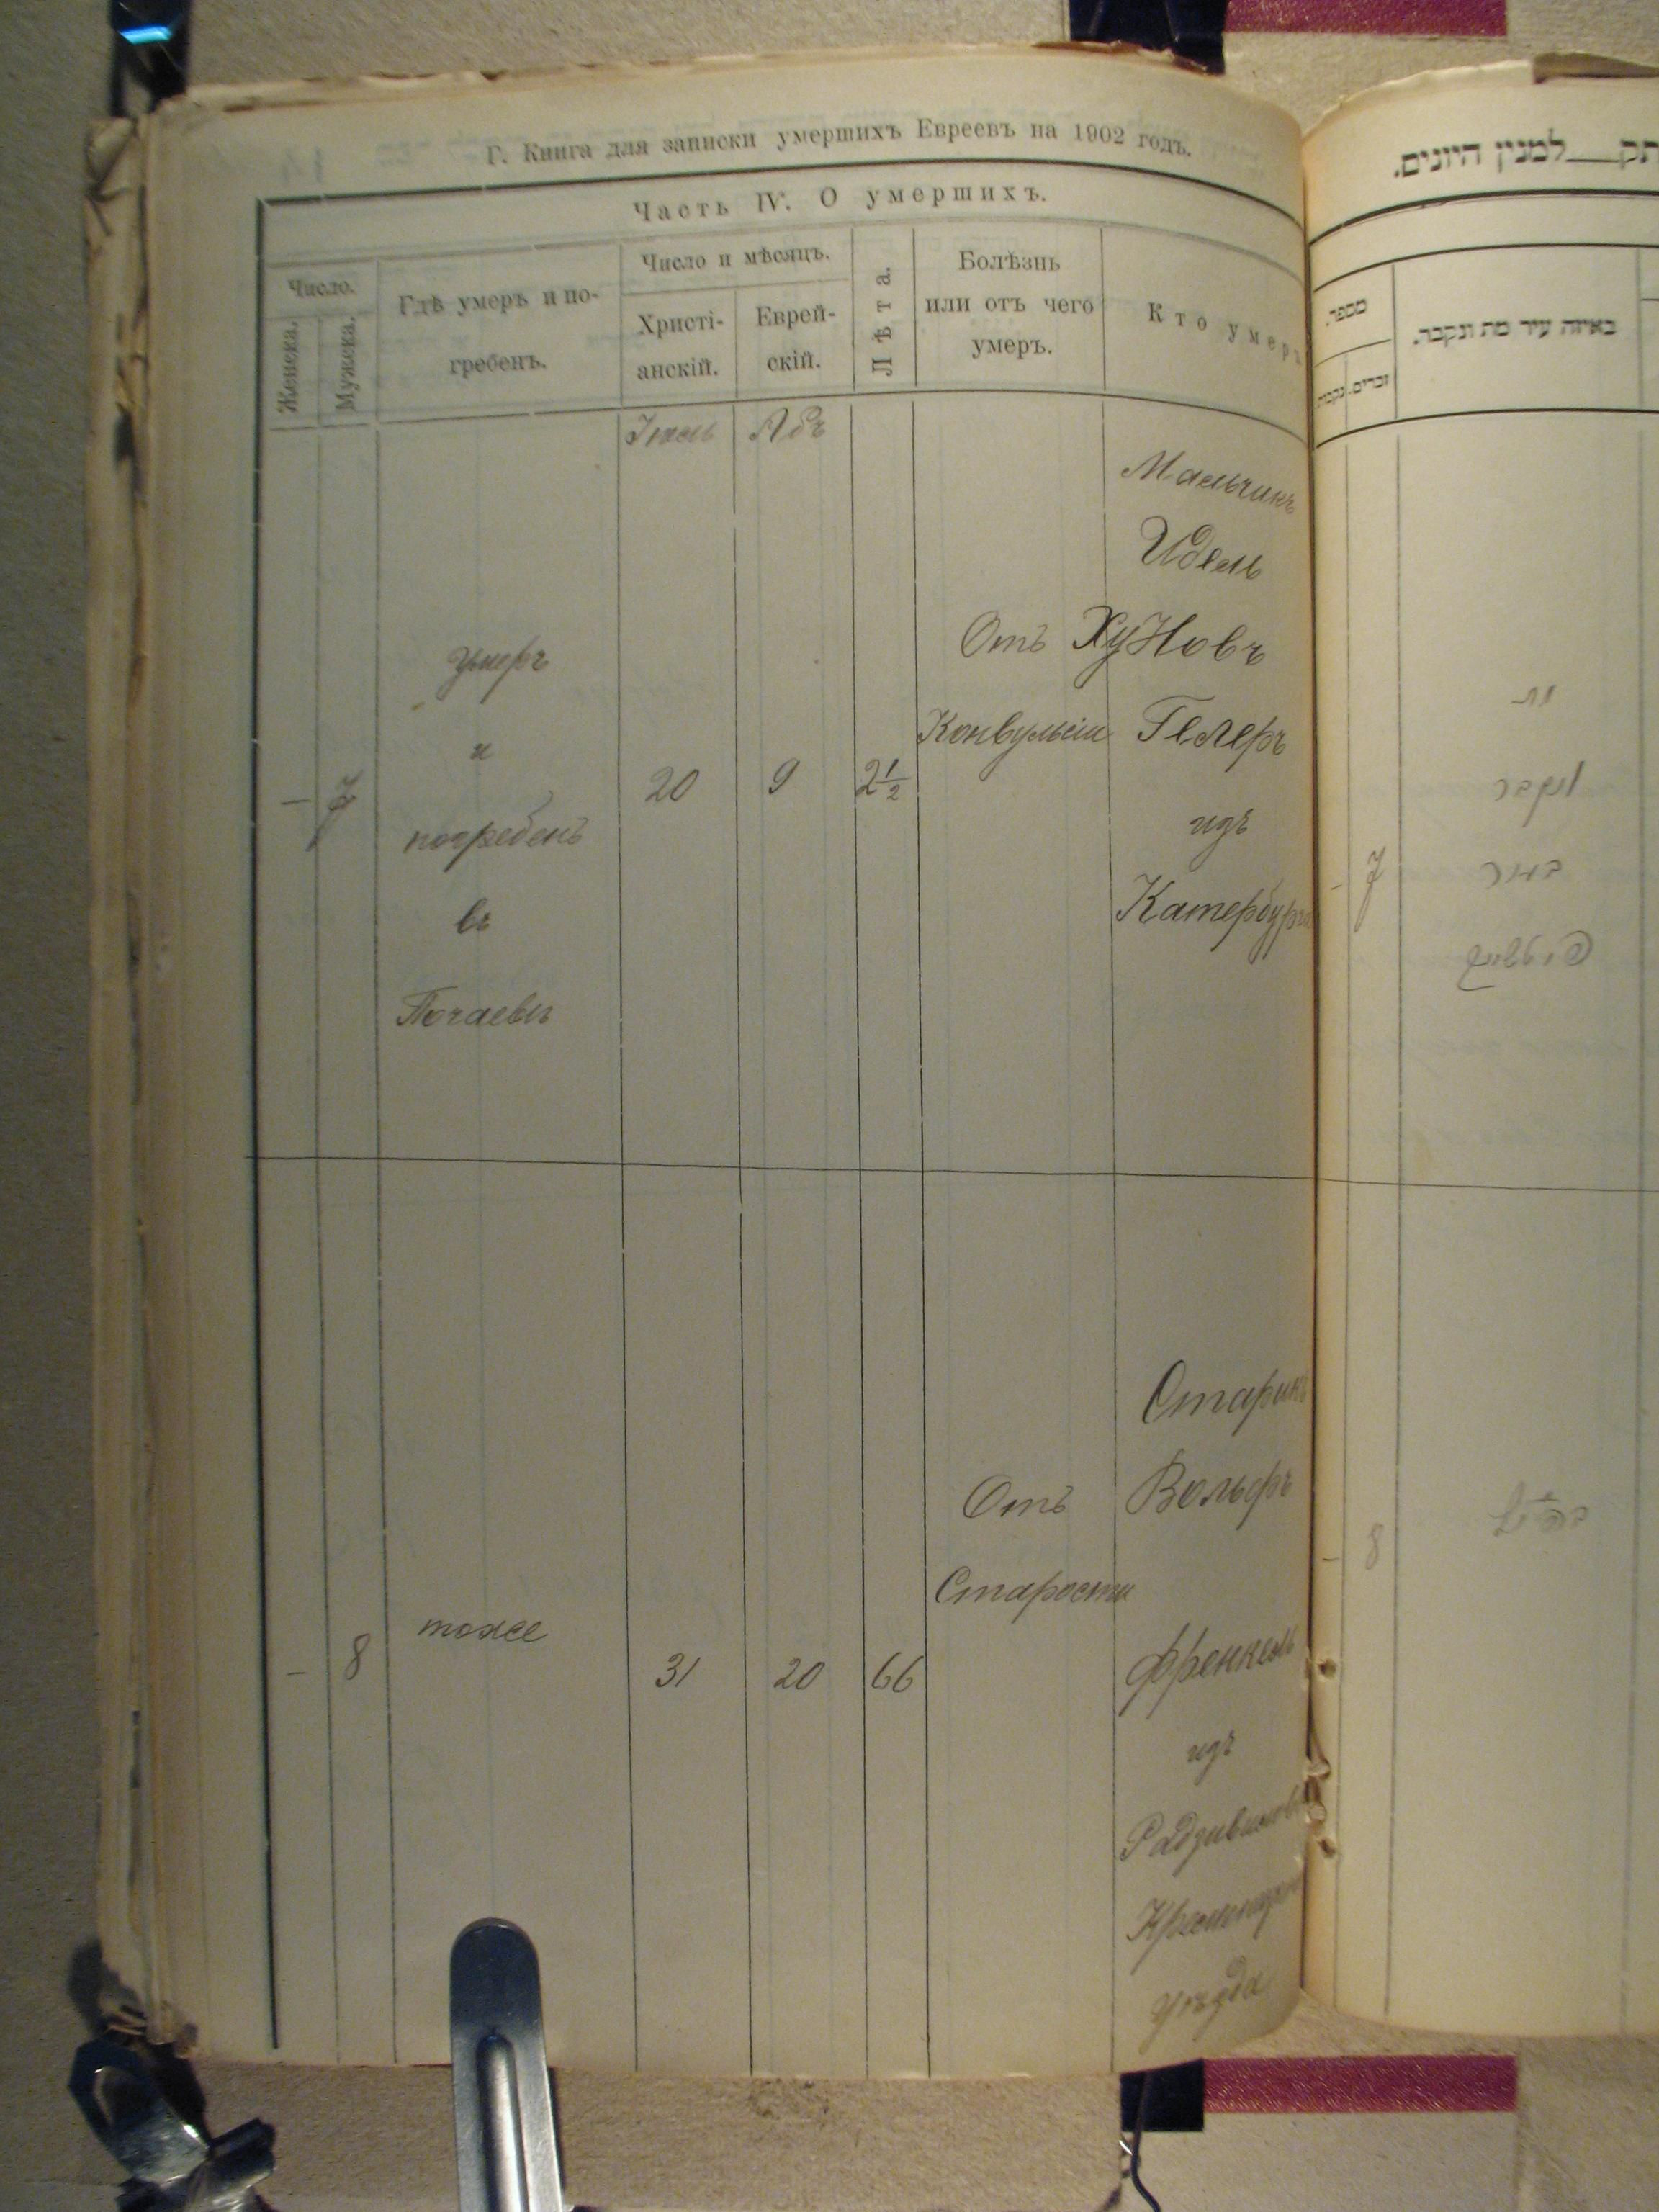 Г. Книга для записки умершихъ Евреевъ на 1902 годъ.
Часть IV. О умершихъ.
Число.
Женска.
Мужска.
Гдѣ умеръ и по-
гребенъ.
Число и мѣсяцъ.
Христі-
анскій.
Еврей-
скій.
Лѣта.
Болѣзнь
или отъ чего
умеръ.
Кто умеръ
Іюль
Абъ
–
7
умеръ
и
погребенъ
въ
Почаевѣ
20
9
2 1/2
Отъ
Конвульсіи
Мальчикъ
Идель
ХуНовъ
Гелеръ
изъ
Катербурга
–
8
тоже
31
20
66
Отъ
Старости
Старикъ
Вольфъ
Френкель
изъ
Радзивилова
уѣзда
למנין היונים.
מספר.
זכרים.
נקבות
באיזה עיר מת ונקבר.
–
7
מת
ונקבר
בעיר
–
8